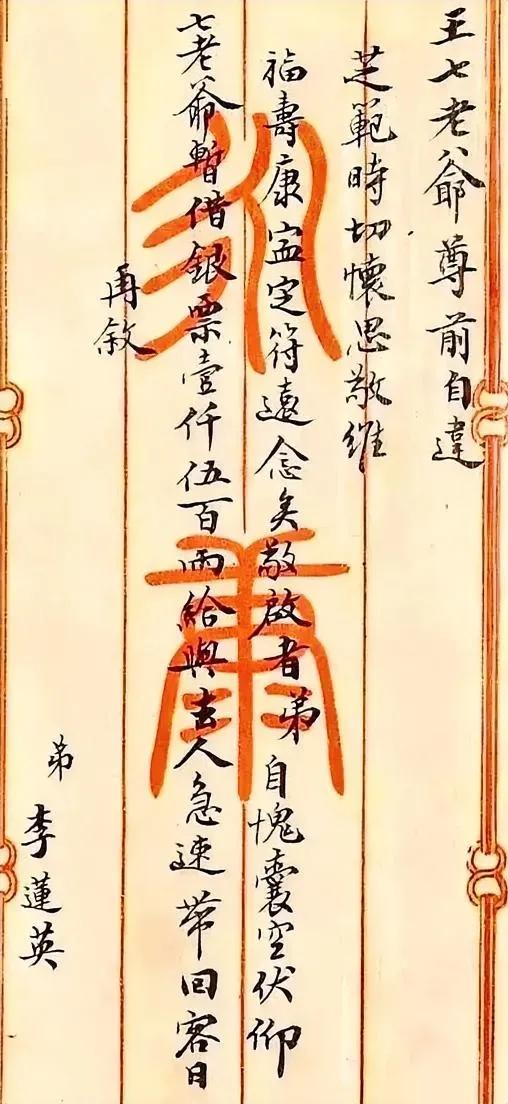 王七老爺尊前自違
芝範時切懷思敬維
福壽康寍定符遠念矣敬啟者弟自愧囊空伏仰
七老爺暫借銀票壹仟伍百兩給與去人急速帶回容日
再敘
弟李蓮英